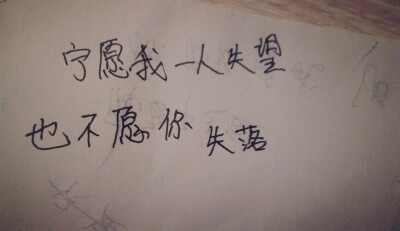 宁愿我一人失望
也不愿你失落